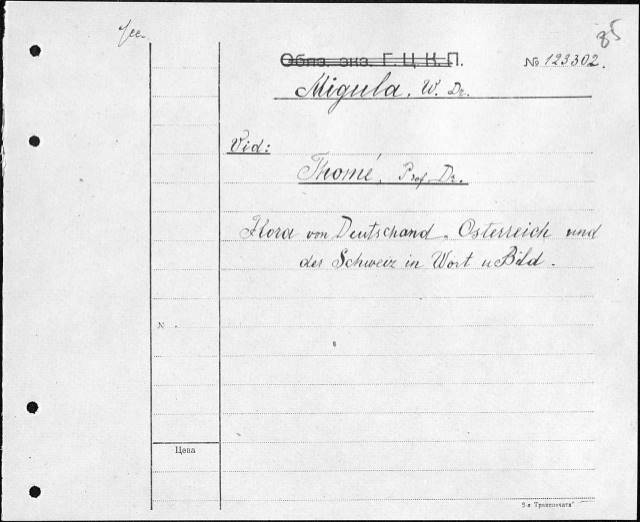 85
Обяз. экз. Г. Ц. К. П.
№ 123302.
Migula. W. Dr.
Vid:
Thomé, Prof. Dr.
Flora von Deutschand, Osterreich und
der Schweiz in Wort u Bild.
N
Цена